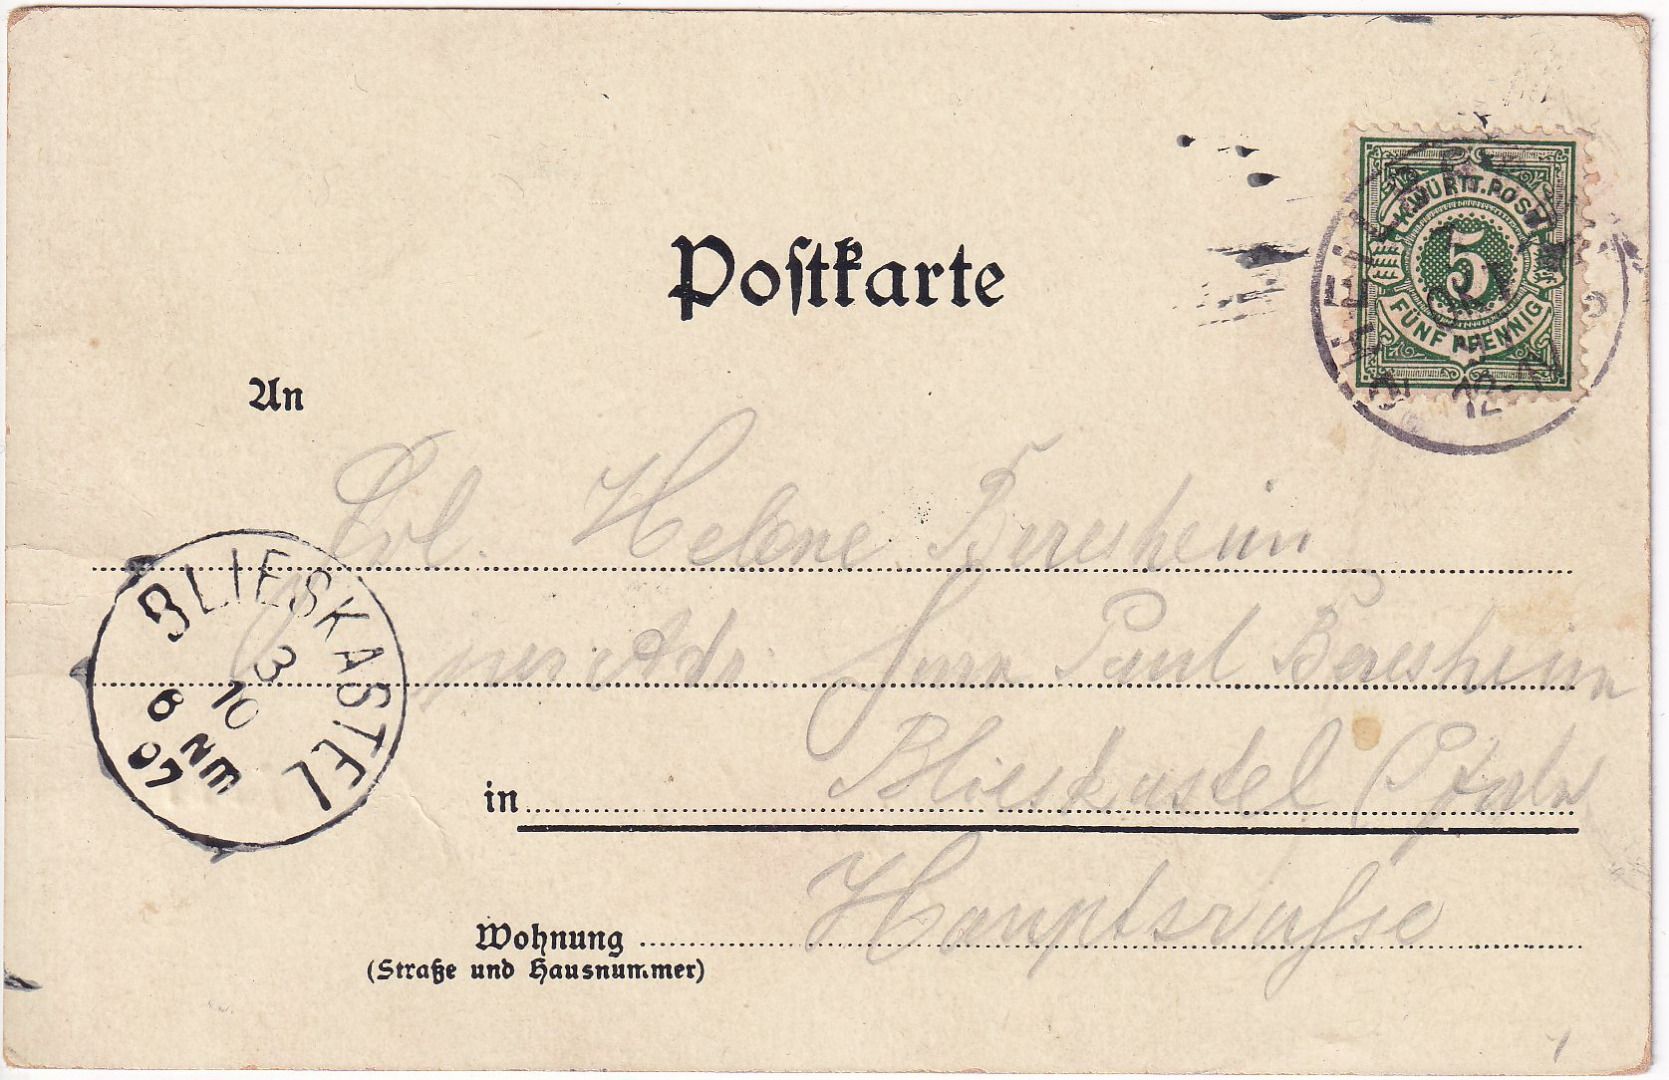 Postkarte
K.WÜRTT.POST
5
FÜNF PFENNIG
12-1
An
Frl. Helene Beresheim
per Adr. Herrn Paul Beresheim
in Blieskastel (Pfalz
Hauptstrasse
Wohnung
(Straße und Hausnummer)
BLIESKASTEL
3
10
6 NM
07